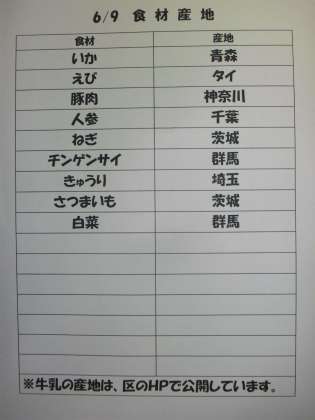 6/9 食材産地
食材 産地
いか 青森
えび タイ
豚肉 神奈川
人参 千葉
ねぎ 茨城
チンゲンサイ 群馬
きゅうり 埼玉
さつまいも 茨城
白菜 群馬
※牛乳の産地は、区のHPで公開しています。